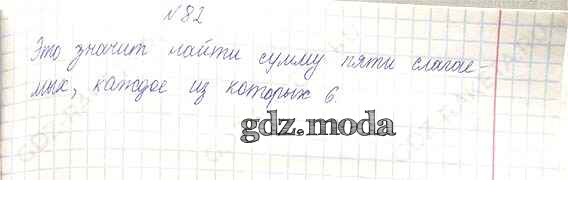 № 82
Это значит найти сумму пяти слагае-
мых, каждое из которых 6.
gdz.moda